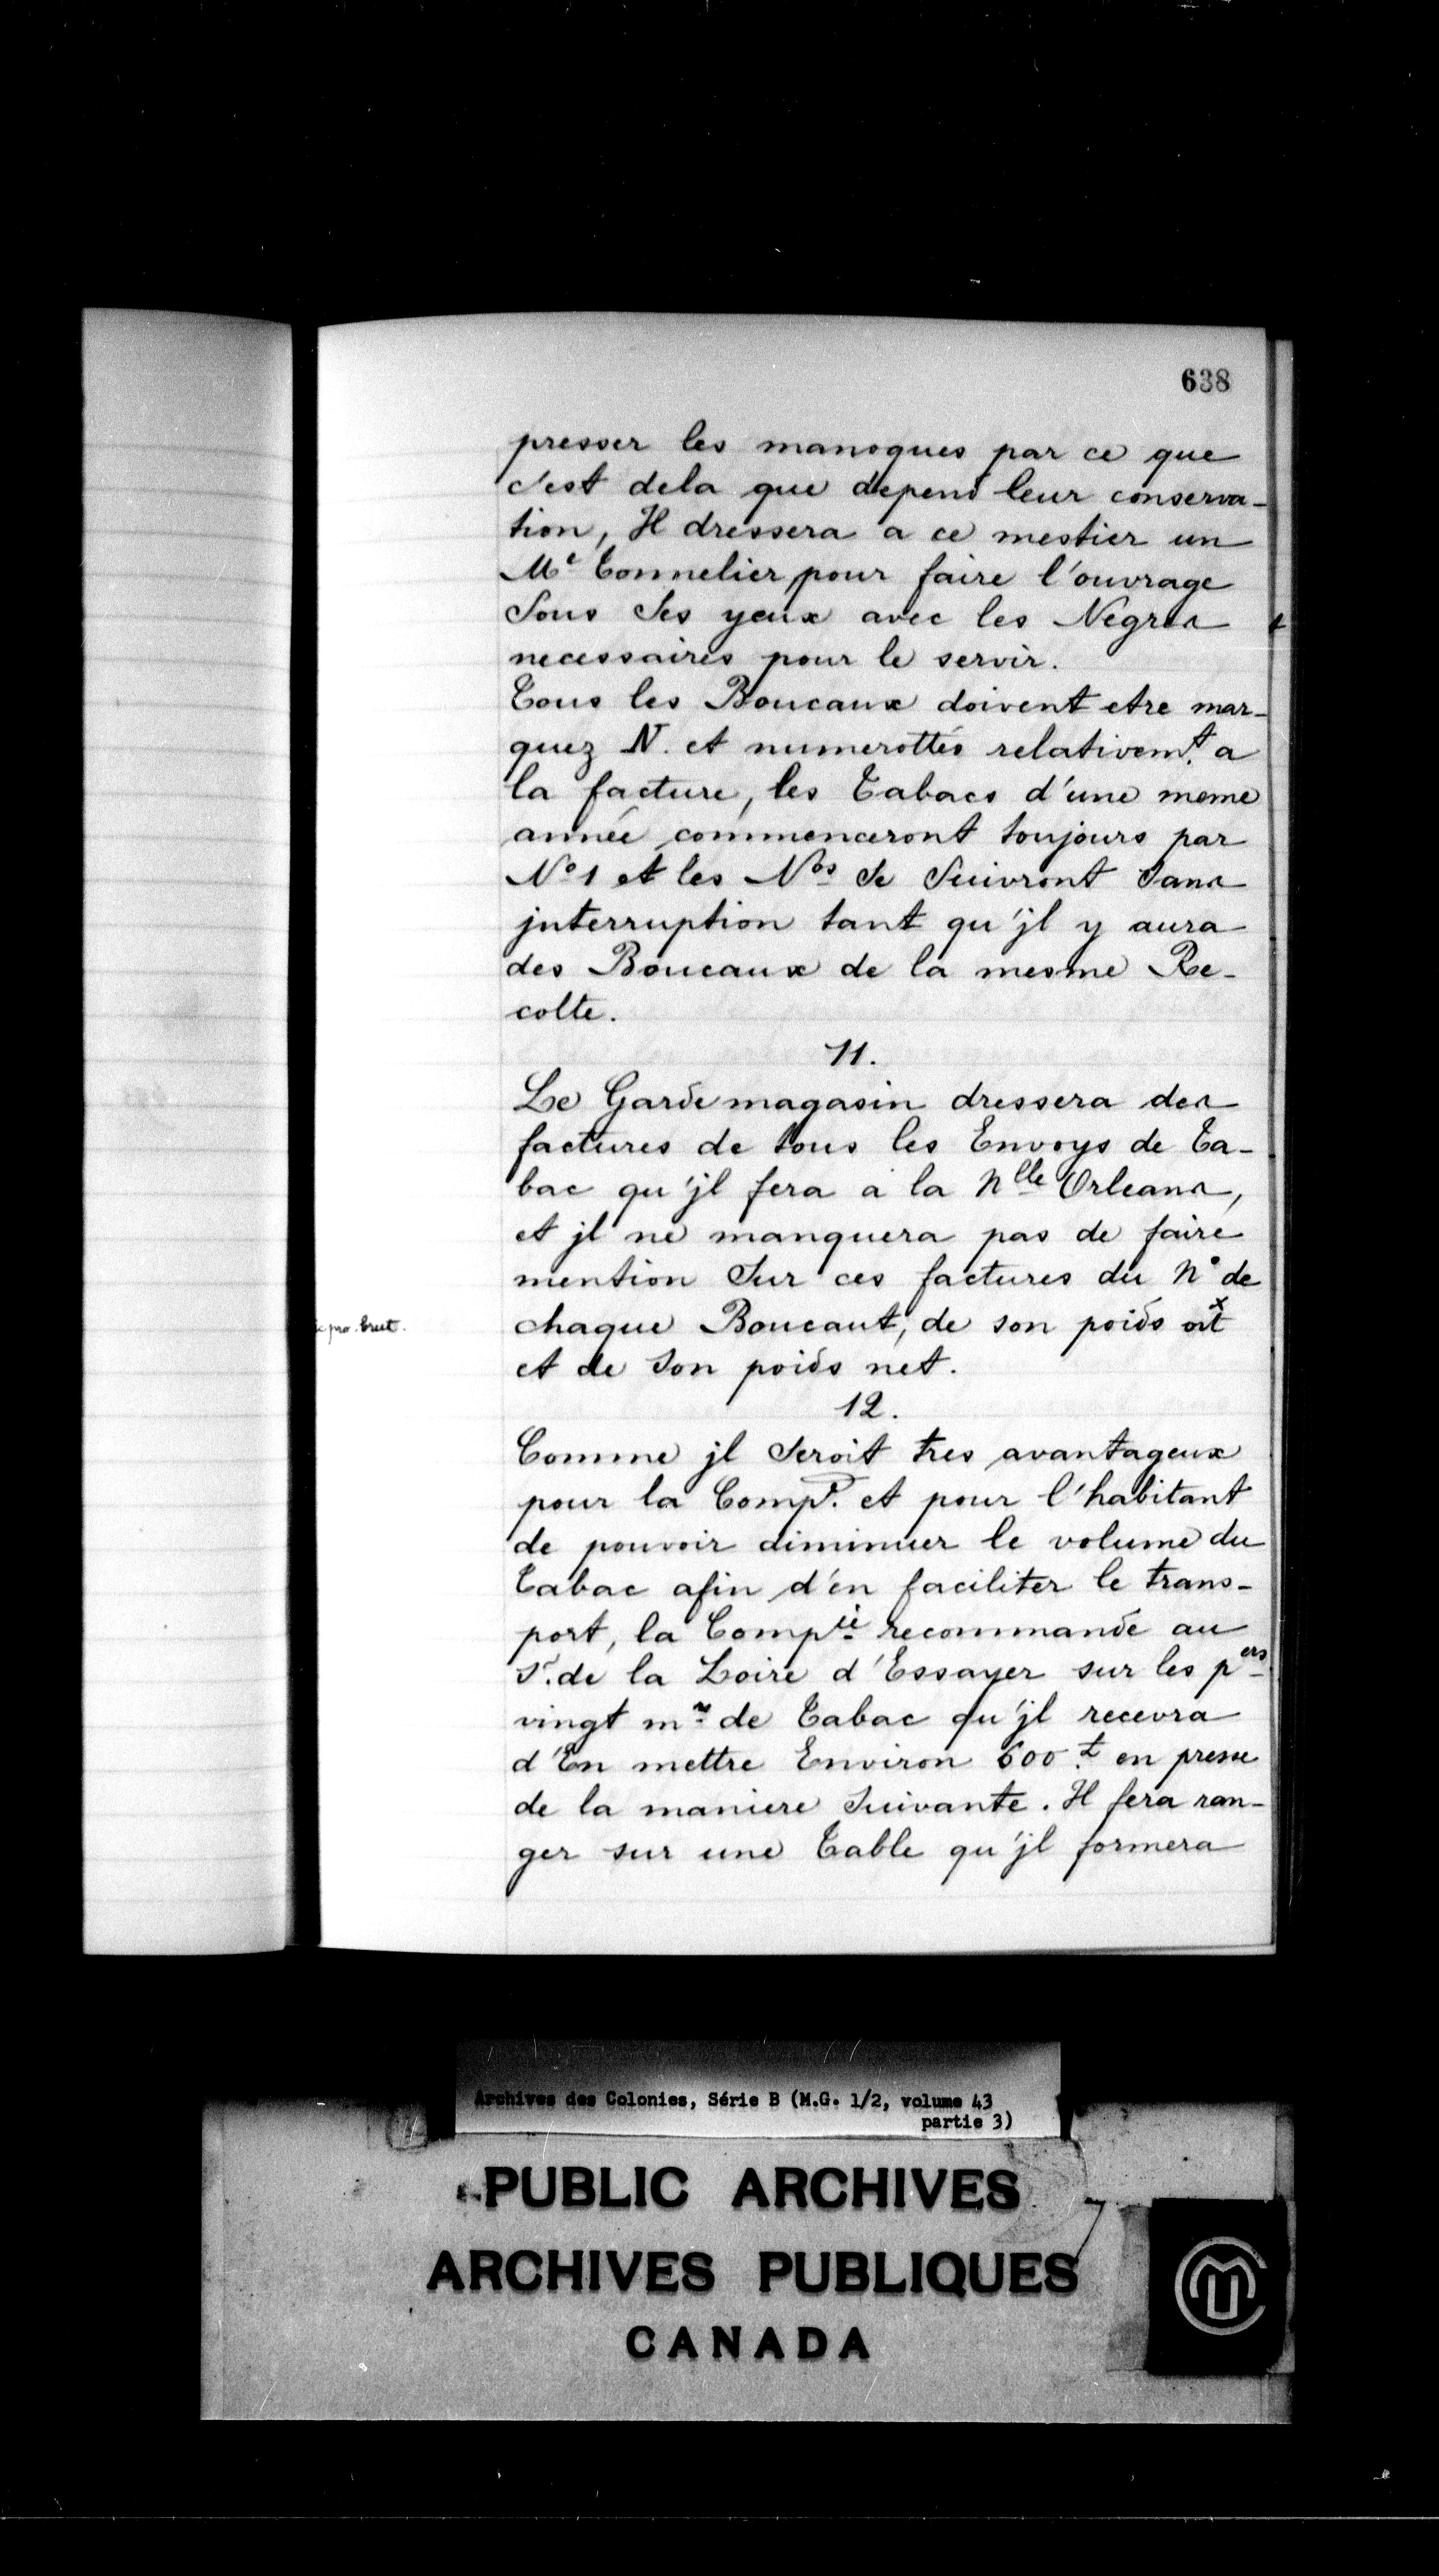 638
presser les manoques par ce que
c'est dela que depend leur conserva-
tion, Il dressera a ce mestier un
Me Tonnelier pour faire l'ouvrage
Sous Ses yeux avec les Negres
necessaires pour le servir.
Tous les Boucaux doivent etre mar-
quez N. et numerottés relativemt. a
la facture, les Tabacs d'une meme
année commenceront toujours par
No 1 et les Nos Se Suivront Sans
jnterruption tant qu'jl y aura
des Boucaux de la mesme Re-
colte.
11.
Le Garde magasin dressera des
factures de tous les Envoys de Ta-
bac qu'jl fera a la Nlle Orleans,
et jl ne manquera pas de faire
mention Sur ces factures du No de
chaque Boucaut, de son poids ort x
pro. brut.
et de Son poids net.
12.
Comme jl Seroit tres avantageux
pour la Comp. et pour l'habitant
de pouvoir diminuer le volume du
Tabac afin d'en faciliter le trans-
port, la Compie recommande au
Sr. de la Loire d'Essayer sur les pers
vingt mrs de Tabac qu'jl recevra
d'En mettre Environ 600 t. en presse
de la maniere Suivante. Il fera ran-
ger sur une Table qu'jl formera
Archives des Colonies, Série B (M.G. 1/2, volume 43
partie 3)
PUBLIC ARCHIVES
ARCHIVES PUBLIQUES
CANADA